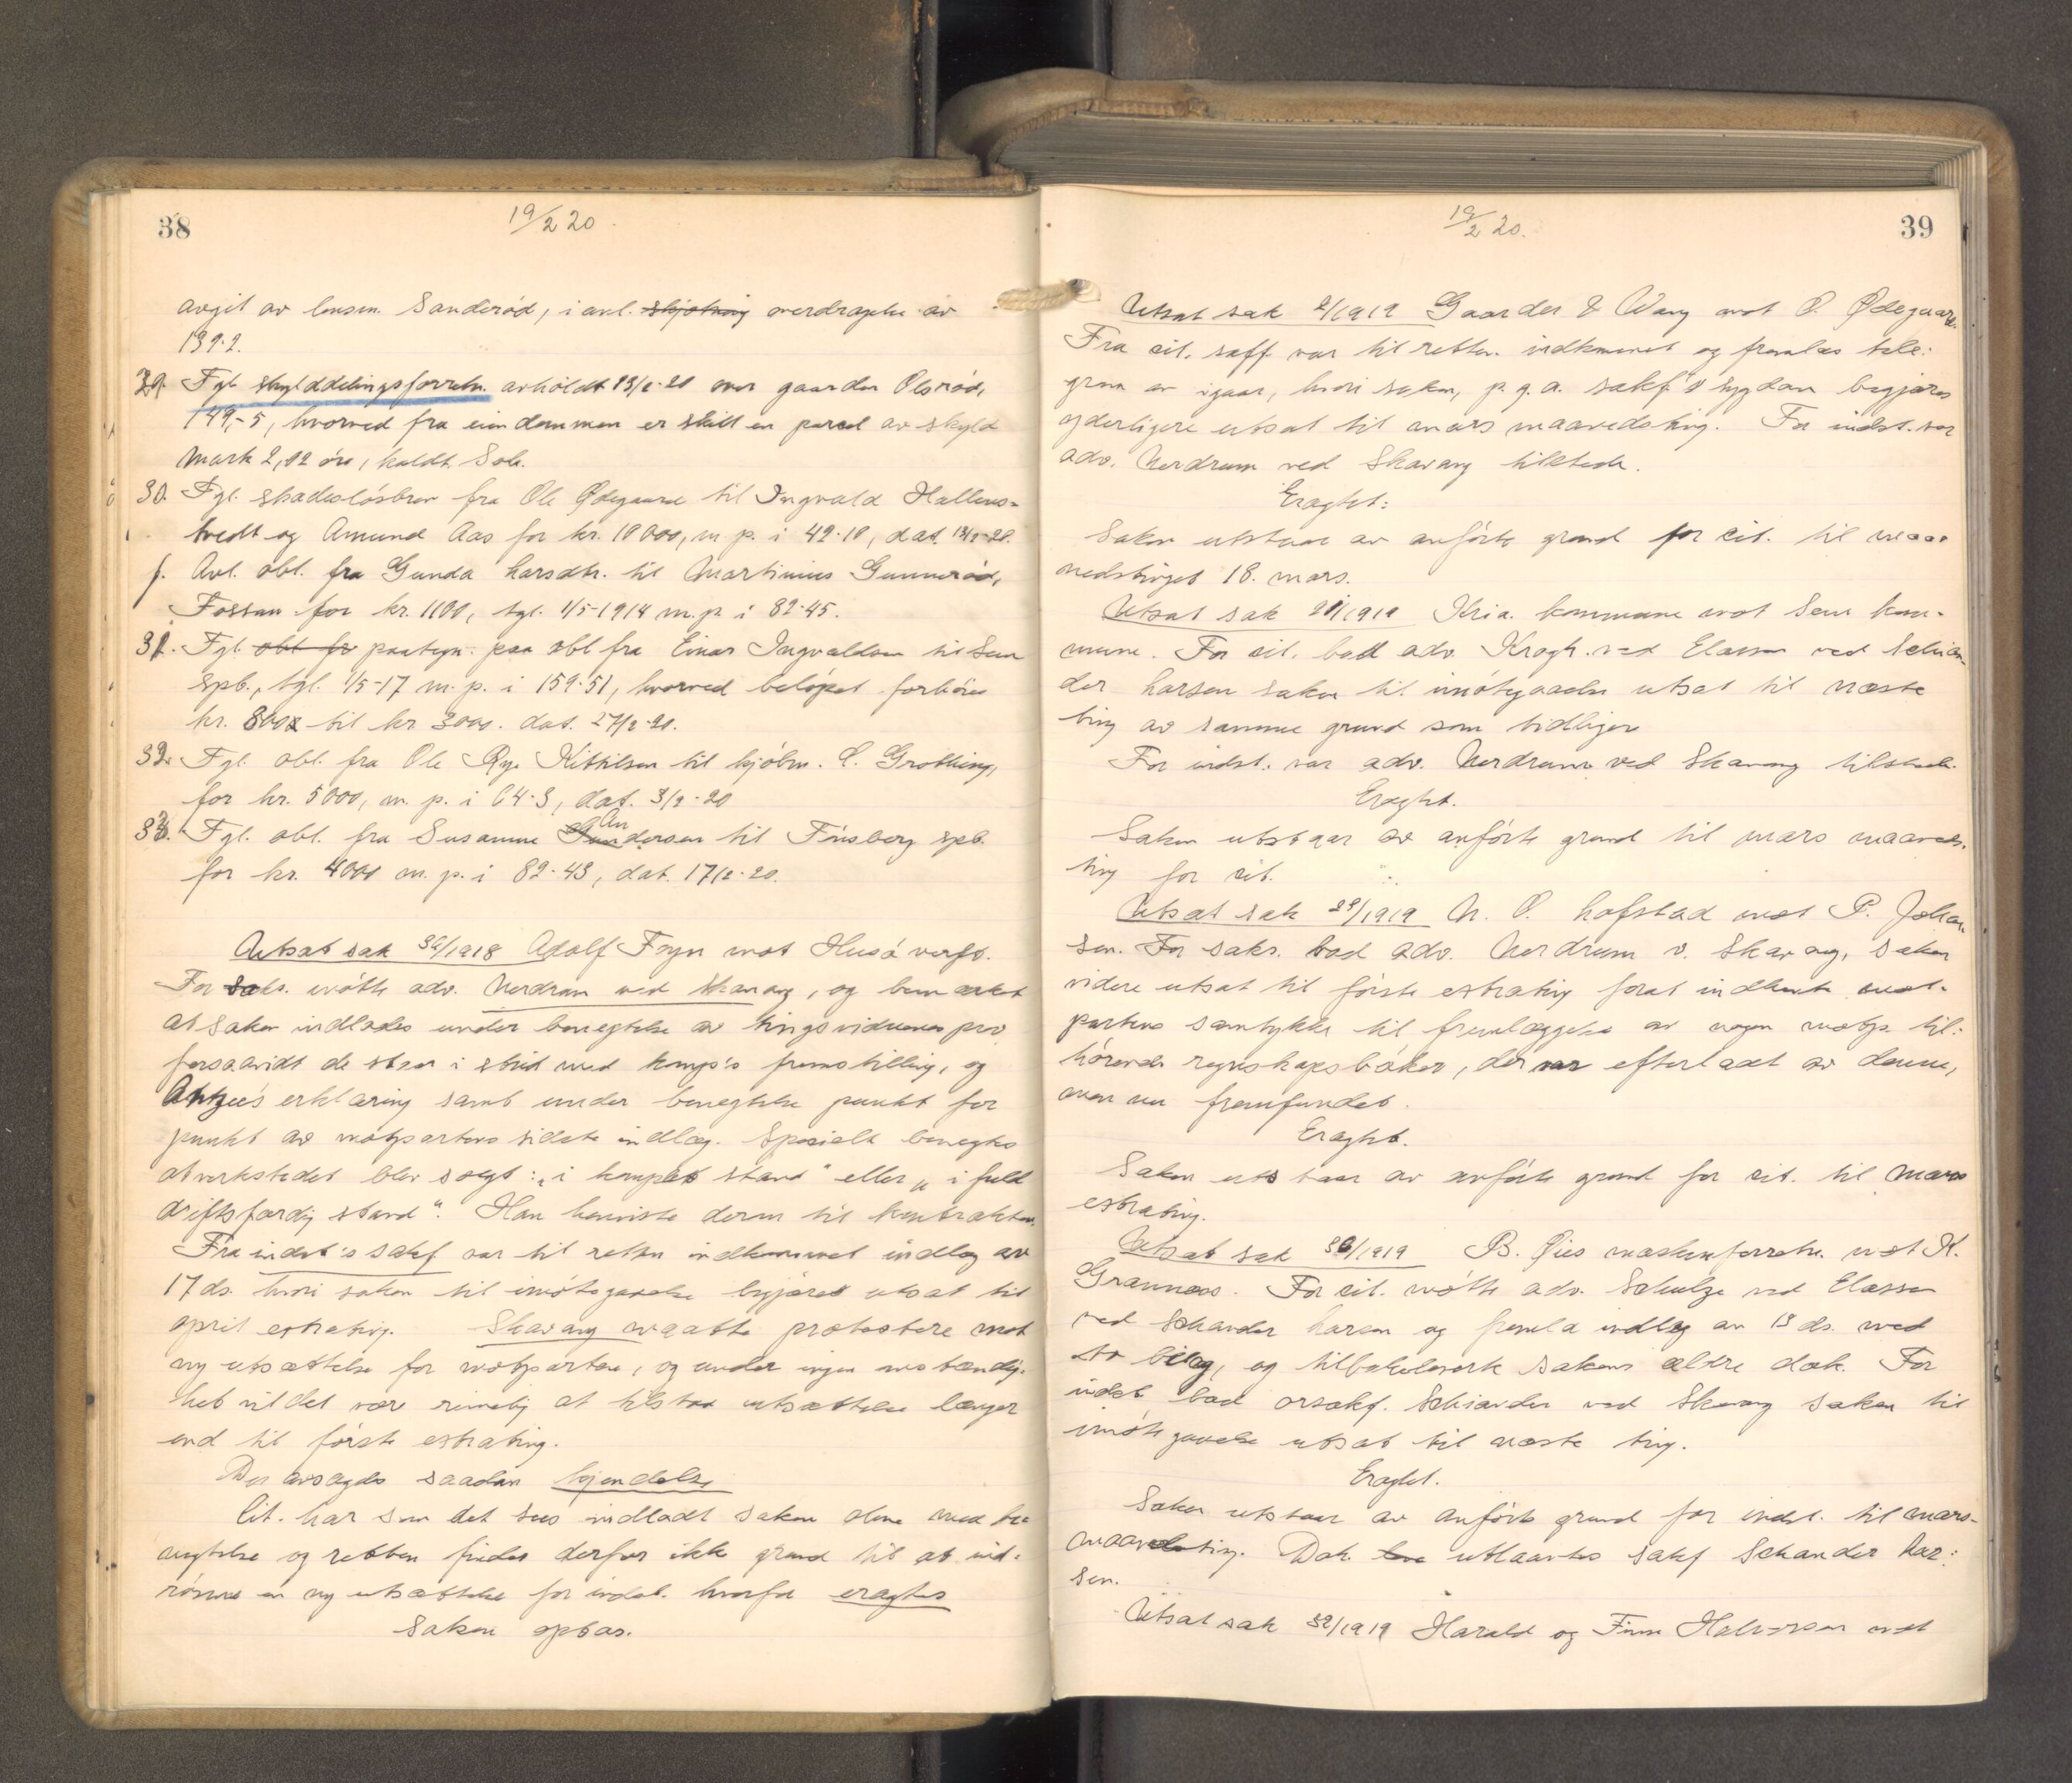 38
19/2 20
avgit av lensm. Sanderød, i anl. skjøtning overdragelse av
139.2.
29. Fgl. skylddelingsforretn. avholdt 13/2-20 over gaarden Olsrød,
149,-5, hvorved fra eiendommen er skilt en parcel av skyld
mark 2,02 øre, kaldt Sole.
30. Fgl. skadesløsbrev fra Ole Ødegaard til Ingvald Hallens-
tvedt og Amund Aas for kr. 10000, m. p. i 42.10, dat. 13/2-20.
f. Avl. obl. fra Gunda Larsdtr. til Martinius Gunnerød,
Fossan for kr. 1100, tgl. 1/5-1914 m. p i 82-45.
31. Fgl. obl fr paategn. paa obl fra Einar Ingvaldsen til Sem
spb., tgl. 1/5-17 m. p. i 159.51, hvorved beløpet forhøies
kr. 800 til kr 3000. dat. 27/2-20.
32. Fgl. obl. fra Ole Rye Kittilsen til kjøbm. C. Grøthing,
for kr. 5000, m. p. i 64-3, dat. 3/2-20
33. Fgl. obl. fra Susanne Andersen til Tønsberg spb.
for kr. 4000 m. p. i 82-43, dat. 17/2-20.
Utsat sak 32/1918 Adolf Foyn mot Husø verft.
For saks. møtte adv. Nerdrum ved Skavang, og bemerket
at saken indlades under benegtelse av tingsvidnenes prov
forsaavidt de staar i strid med komp's fremstilling, og
erklæring samt under benegtelse punkt for
punkt av motpartens sidste indlæg. Specielt benegtes
at verkstedet blev solgt: „i komplet stand" eller „i fuld
driftsfærdig stand". Han henviste derom til kontrakten.
Fra indst's sakf var til retten indkommet indlæg av
17 ds. hvori saken til imøtegaaelse begjæres utsat til
april extrating. Skavang maatte protestere mot
ny utsættelse for motparten, og under ingen omstændig-
het vil det være rimelig at tilstaa utsættelse længer
end til første extrating.
Der avsagdes saadan kjendelse
Cit. har som det sees indladt saken alene med be-
negtelse og retten finder derfor ikke grund til at ind-
rømme en ny utsættelse for indst. hvorfor eragtes
Saken optas.
19/2 20.
39
Utsat sak 2/1919 Gaarder & Wang mot O. Ødegaard.
Fra cit. sakf. var til retten indkommet og fremlæs tele-
gram av igaar, hvori saken, p. g. a. sakf's sygdom begjæres
yderligere utsat til mars maanedsting. For indst. var
adv. Nerdrum ved Skavang tilstede.
Eragtet:
Saken utstaar av anførte grund for cit. til maa-
nedstinget 18. mars.
Utsat sak 21/1919 Kria. kommune mot Sem kom-
mune. For cit. bad adv. Kragh ved Elassen ved Schian-
der Larsen saken til imøtegaaelse utsat til næste
ting av samme grund som tidligere
For indst. var adv. Nerdrum ved Skavang tilstede.
Eragtet.
Saken utstaar av anførte grund til mars maaneds-
ting for cit.
Utsat sak 29/1919 N. O. Hofstad mot P. Johan-
sen. For saks. bad adv. Nerdrum v. Skavang, saken
videre utsat til første extrating forat indhente mot-
partens samtykke til fremlæggelse av nogen motp. til-
hørende regnskapsbøker, der var efterladt av denne,
men nu fremfundet.
Eragtet.
Saken utstaar av anførte grund for cit. til mars
extrating.
Utsat sak 36/1919 B. Øies maskinforretn. mot K.
Grannæss. For cit. møtte adv. Schulze ved Elassen
ved Schander Larsen og fremla indlæg av 13 ds. med
bilag, og tilbakeleverte sakens ældre dok. For
indst bad orsakf. Schiander ved Skavang saken til
imøtegaaelse utsat til næste ting.
Eragtet.
Saken utstaar av anførte grund for indst. til mars-
maanedsting. Dok. utlaantes sakf Schander Lar-
sen.
Utsat sak 32/1919 Harald og Finn Halvorsen mot